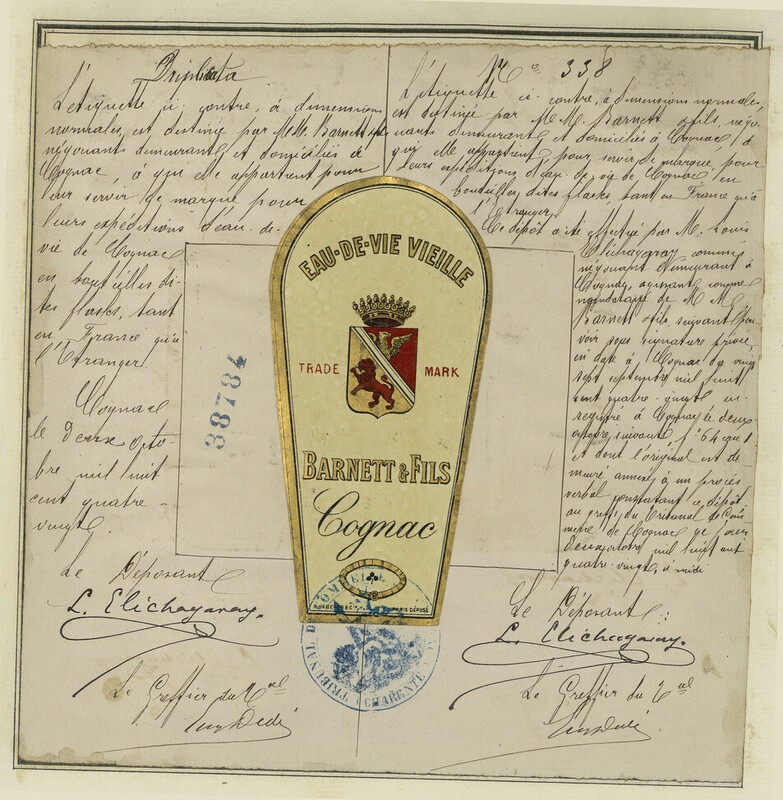 Duplicata
L'étiquette ci-contre, à dimensions
normales, est destinée par M.M. Barnett & fils
négociants demeurant et domiciliés à
Cognac, à qui elle appartient pour
leur servir de marque pour
leurs expéditions d'eau-de-
vie de Cognac
en bouteilles di-
tes flasks, tant
en France qu'à
l'Etranger.
Cognac
le deux octo-
bre mil huit
cent quatre-
vingt.
Le Déposant
L. Elichagaray.
Le Greffier du Tnal
38784
EAU-DE-VIE VIEILLE
TRADE MARK
BARNETT & FILS
Cognac
PARIS DÉPOSÉ
TRIBUNAL DE COMMERCE
CHARENTE
No 338
L'étiquette ci-contre, à dimensions normales,
est destinée par M.M. Barnett & fils, négo-
ciants demeurant et domiciliés à Cognac, à
qui elle appartient, pour servir de marque pour
leurs expéditions d'eau-de-vie de Cognac en
bouteilles dites flasks, tant en France qu'à
l'Etranger.
Ce dépôt a été effectué par M. Louis
Elichagaray commis
négociant demeurant à
Cognac, agissant comme
mandataire de M.M.
Barnett & fils, suivant pou-
voir sous signature privée,
en date à Cognac du vingt
sept septembre mil huit
cent quatre-vingt, en-
registré à Cognac le deux
octobre suivant, fo 64
et dont l'original est de-
meuré annexé à un procès
verbal constatant ce dépôt
au greffe du Tribunal de Com-
merce de Cognac ce jour
deux octobre mil huit cent
quatre-vingt, à midi
Le Déposant
L. Elichagaray.
Le Greffier du Tnal